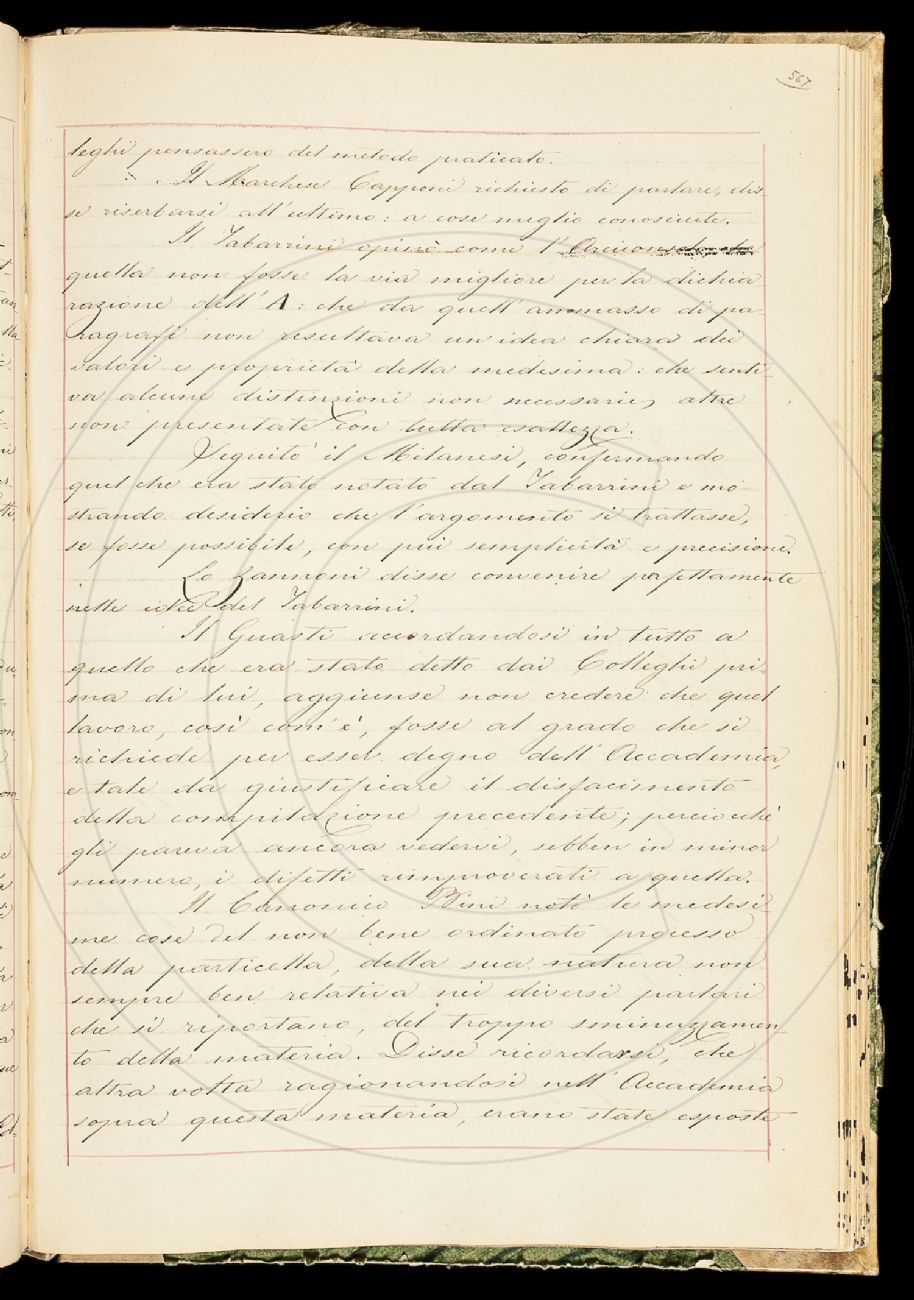 567
leghi pensassero del metodo praticato.
Il Marchese Capponi richiesto di parlare, dis
se riserbarsi all'ultimo: a cose meglio conosciute.
Il Tabarrini opinò come l'Arciconsolo che
quella non fosse la via migliore per la dichia
razione dell'A: che da quell'ammasso di pa-
ragrafi non resultava un'idea chiara dei
valori e proprietà della medesima: che senti-
va alcune distinzioni non necessarie, altre
non presentate con tutta esattezza.
Seguitò il Milanesi, confermando
quel che era stato notato dal Tabarrini e mo-
strando desiderio che l'argomento si trattasse,
se fosse possibile, con più semplicità e precisione.
Lo Zannoni disse convenire perfettamente
nelle idee del Tabarrini.
Il Guasti accordandosi in tutto a
quello che era stato detto dai Colleghi pri-
ma di lui, aggiunse non credere che quel
lavoro, così com'è, fosse al grado che si
richiede per esser degno dell'Accademia,
e tale da giustificare il disfacimento
della compilazione precedente; perciocchè
gli pareva ancora vedervi, sebben in minor
numero, i difetti rimproverati a quella.
Il Canonico Bini notò le medesi-
me cose del non bene ordinato processo
della particella, della sua natura non
sempre ben relativa nei diversi parlari
che si riportano, del troppo sminuzzamen-
to della materia. Disse ricordarsi, che
altra volta ragionandosi nell'Accademia
sopra questa materia, erano state esposte